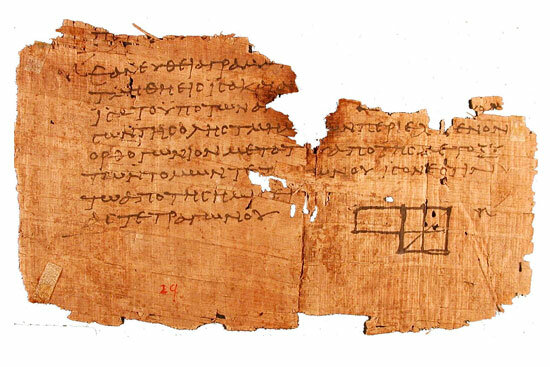 ΕΑΝΕΥΘΕΙΑΓΡΑΜΜ
ΤΜΗΘΗΕΙϹΙϹΑΚ
ΙϹΑΤΟΥΠΟΤΩΝΑΝ
ϹΩΝΤΗϹΟΛΗϹΤΜΗΜ ΝΠΕΡΙΕΧΟΜΕΝΟΝ
ΟΡΘΟΓΩΝΙΟΝΜΕΤΑΤ ΑΠΟΤΗϹΜΕΤΟΞΥ
ΤΩΝΤΟΜΩΝΤΕΤ ΩΝΟΥΙϹΟΝΕϹΤΙΝ
ΤΩΑΠΟΤΗϹΗΜΙ
ΑϹΤΕΤΡΑΓΩΝΟΥ
29